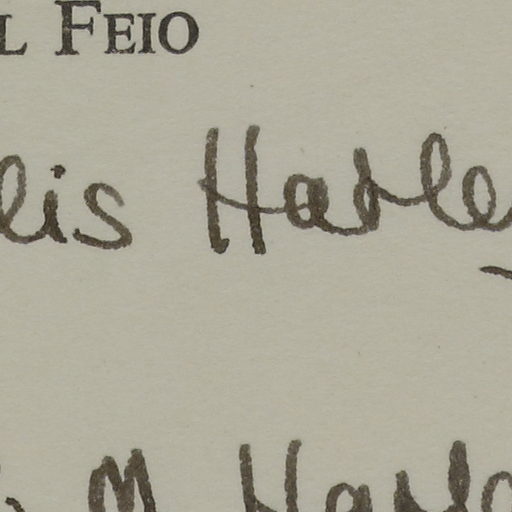 L FEIO
lis Harley
M Harl